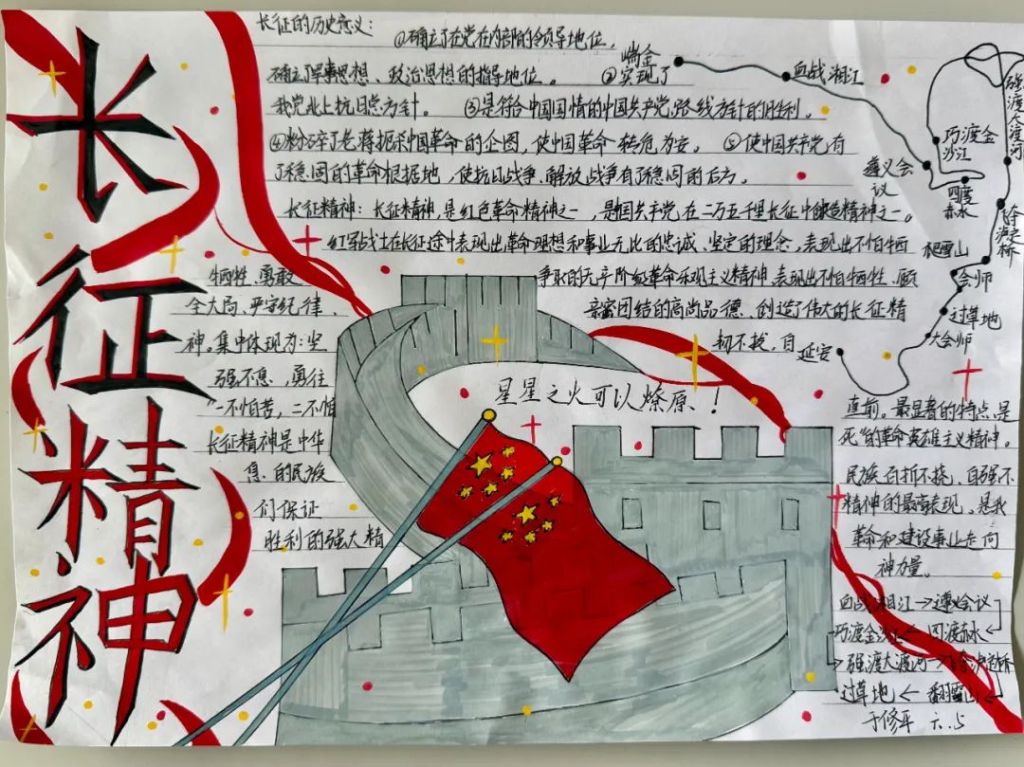 长征精神
长征的历史意义：
①确立了在党在内部的领导地位，
确立了军事思想、政治思想的指导地位。 ②实现了
我党北上抗日总方针。 ③是符合中国国情的中国共产党路线方针的胜利。
④粉碎了老蒋扼杀中国革命的企图，使中国革命转危为安。 ⑤使中国共产党有
了稳固的革命根据地，使抗日战争、解放战争有了稳固的后方。
长征精神：长征精神，是红色革命精神之一，是中国共产党在二万五千里长征中酿造精神之一。
红军战士在长征途中表现出革命理想和事业无比的忠诚、坚定的理念，表现出不怕牺
牺牲、勇敢 争取的无产阶级革命乐观主义精神，表现出不怕牺牲、顾
全大局、严守纪律、 亲密团结的高尚品德，创造了伟大的长征精
神。集中体现为：坚 韧不拔，自
强不息，勇往 直前。最显著的特点是
"一不怕苦，二不怕 死"的革命英雄主义精神。
长征精神是中华 民族百折不挠，自强不
息的民族 精神的最高表现，是我
们保证 革命和建设事业走向
胜利的强大精 神力量。
星星之火可以燎原！
瑞金
血战湘江
遵义会议
四渡赤水
巧渡金沙江
强渡大渡河
爬雪山
会师
过草地
大会师
延安
血战湘江→遵义会议
巧渡金沙江←四渡赤水
强渡大渡河→
过草地←翻雪山
于修平 六.5